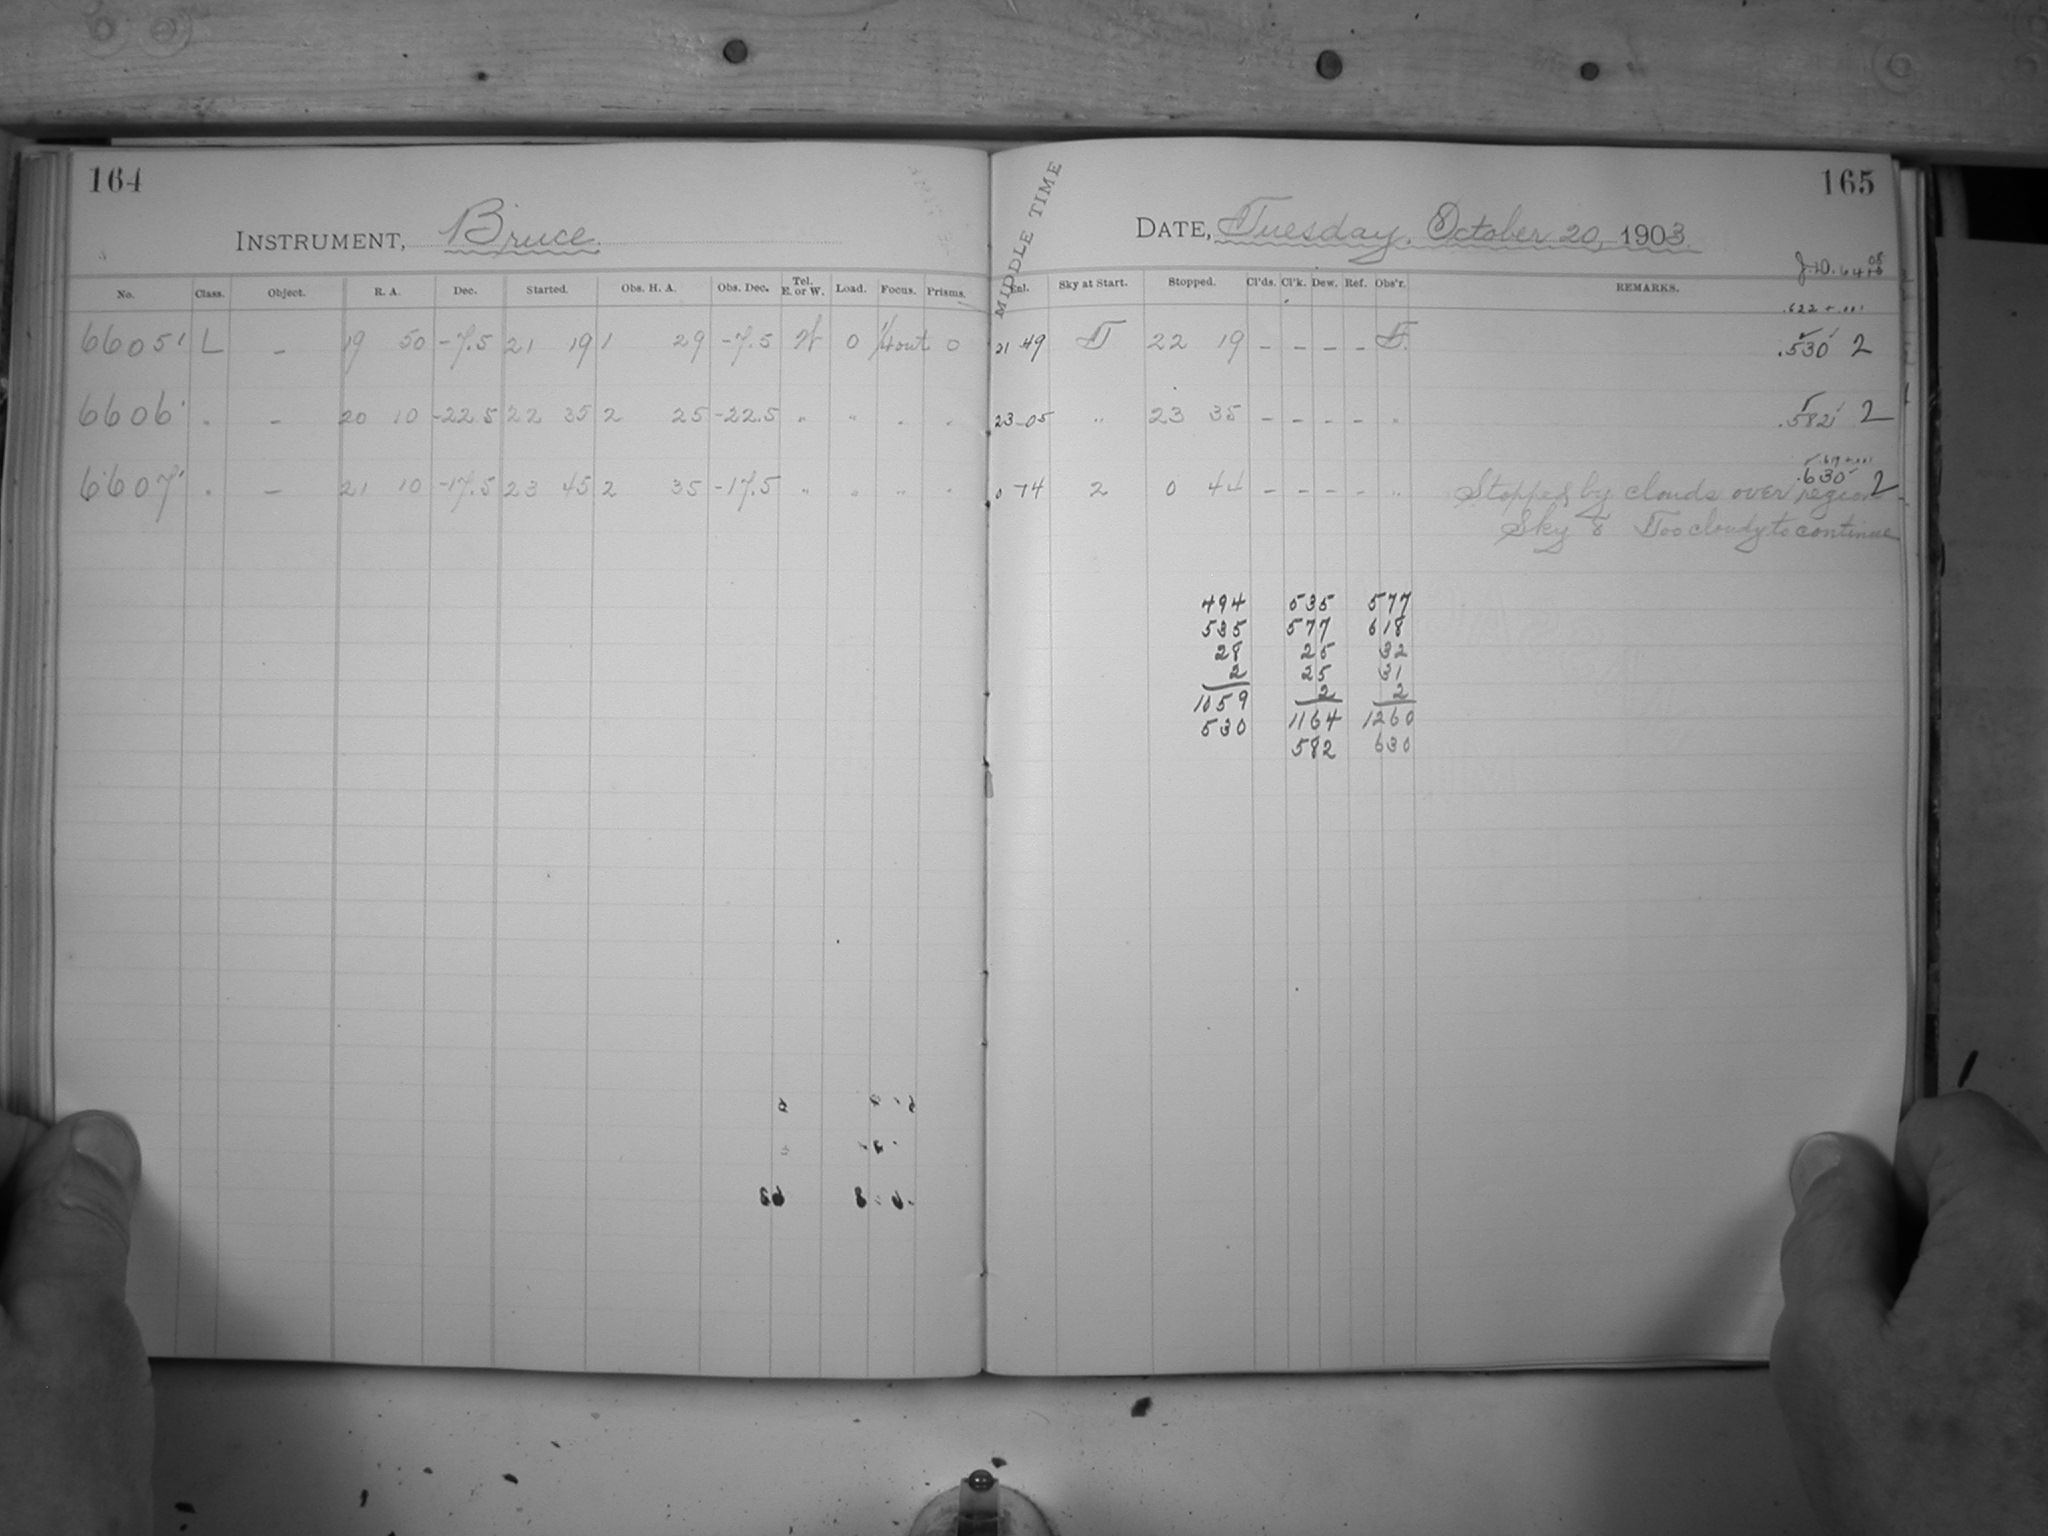 164
INSTRUMENT, Bruce.
No. Class. Object. R. A. Dec. Started. Obs. H. A. Obs. Dec. Tel. E. or W. Load. Focus. Prisms.
6605 L – 19 50 -7.5 21 19 1 29 -7.5 W 0 0
6606 " – 20 10 -22.5 22 35 2 25 -22.5 " " " "
6607 " – 21 10 -17.5 23 45 2 35 -17.5 " " " "
165
MIDDLE TIME
DATE, Tuesday, October 20, 1903.
J.D.
Enl. Sky at Start. Stopped. Cl'ds. Cl'k. Dew. Ref. Obs'r. REMARKS.
.622 + .001
21 49 22 19 – – – – .530 2
23 05 " 23 35 – – – – " .582 2
.619 + .011
0 14 2 0 44 – – – – " Stopped by clouds over region .630 2
Sky 8 Too cloudy to continue
494 535 577
535 577 618
28 25 32
2 25 31
2 2
1059
530 1164 1260
582 630